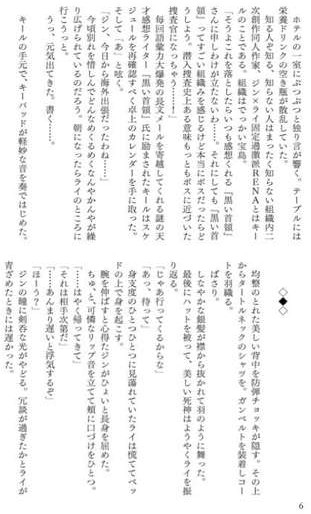 ホテルの一室にぶつぶつと独り言が響く。テーブルには
栄養ドリンクの空き瓶が散乱していた。
知る人ぞ知る、知らない人はまったく知らない組織内二
次創作同人作家、ジン×ライ固定過激派RENAとはキー
ルのことである。組織はでっかい宝島。
「そうよこれを落としたらいつも感想くれる『黒い首領』
さんに申し訳が立たないわ……。それにしても『黒い首
領』ってすごい組織みを感じるけど本当にボスだったらど
うしよう。潜入捜査史上ある意味もっともボスに近づいた
捜査官になっちゃう」
毎回語彙力大爆発の長文メールを寄越してくれる謎の天
才感想ライター『黒い首領』氏に励まされたキールはスケ
ジュールを再確認すべく卓上のカレンダーを手に取った。
そして「あ」と呟く。
「ジン、今日から海外出張だったわね……」
今頃別れを惜しんでどんなめくるめくなんやかんやが繰
り広げられているのだろう。朝になったらライのところに
行こうっと。
うっ、元気出てきた。書く……。
キールの手元で、キーパッドが軽妙な音を奏ではじめた。
◇◆◇
均整のとれた美しい背中を防弾チョッキが隠す。その上
からタートルネックのシャツを。ガンベルトを装着しコー
トを羽織る。
ばさり。
しなやかな銀髪が襟から抜かれて羽のように舞った。
最後にハットを被って、美しい死神はようやくライを振
り返る。
「じゃあ行ってくるからな」
「あっ、待って」
身支度のひとつひとつに見蕩れていたライは慌ててベッ
ドの上で身を起こす。
腕を伸ばすと心得たジンがひょいと長身を屈めた。
ちゅ、と可憐なリップ音を立てて頬に口づけをひとつ。
「……はやく帰ってきて」
「それは相手次第だ」
「……あんまり遅いと浮気するぞ」
「ほーう？」
ジンの瞳に剣呑な光がやどる。冗談が過ぎたかとライが
青ざめたときには遅かった。
6